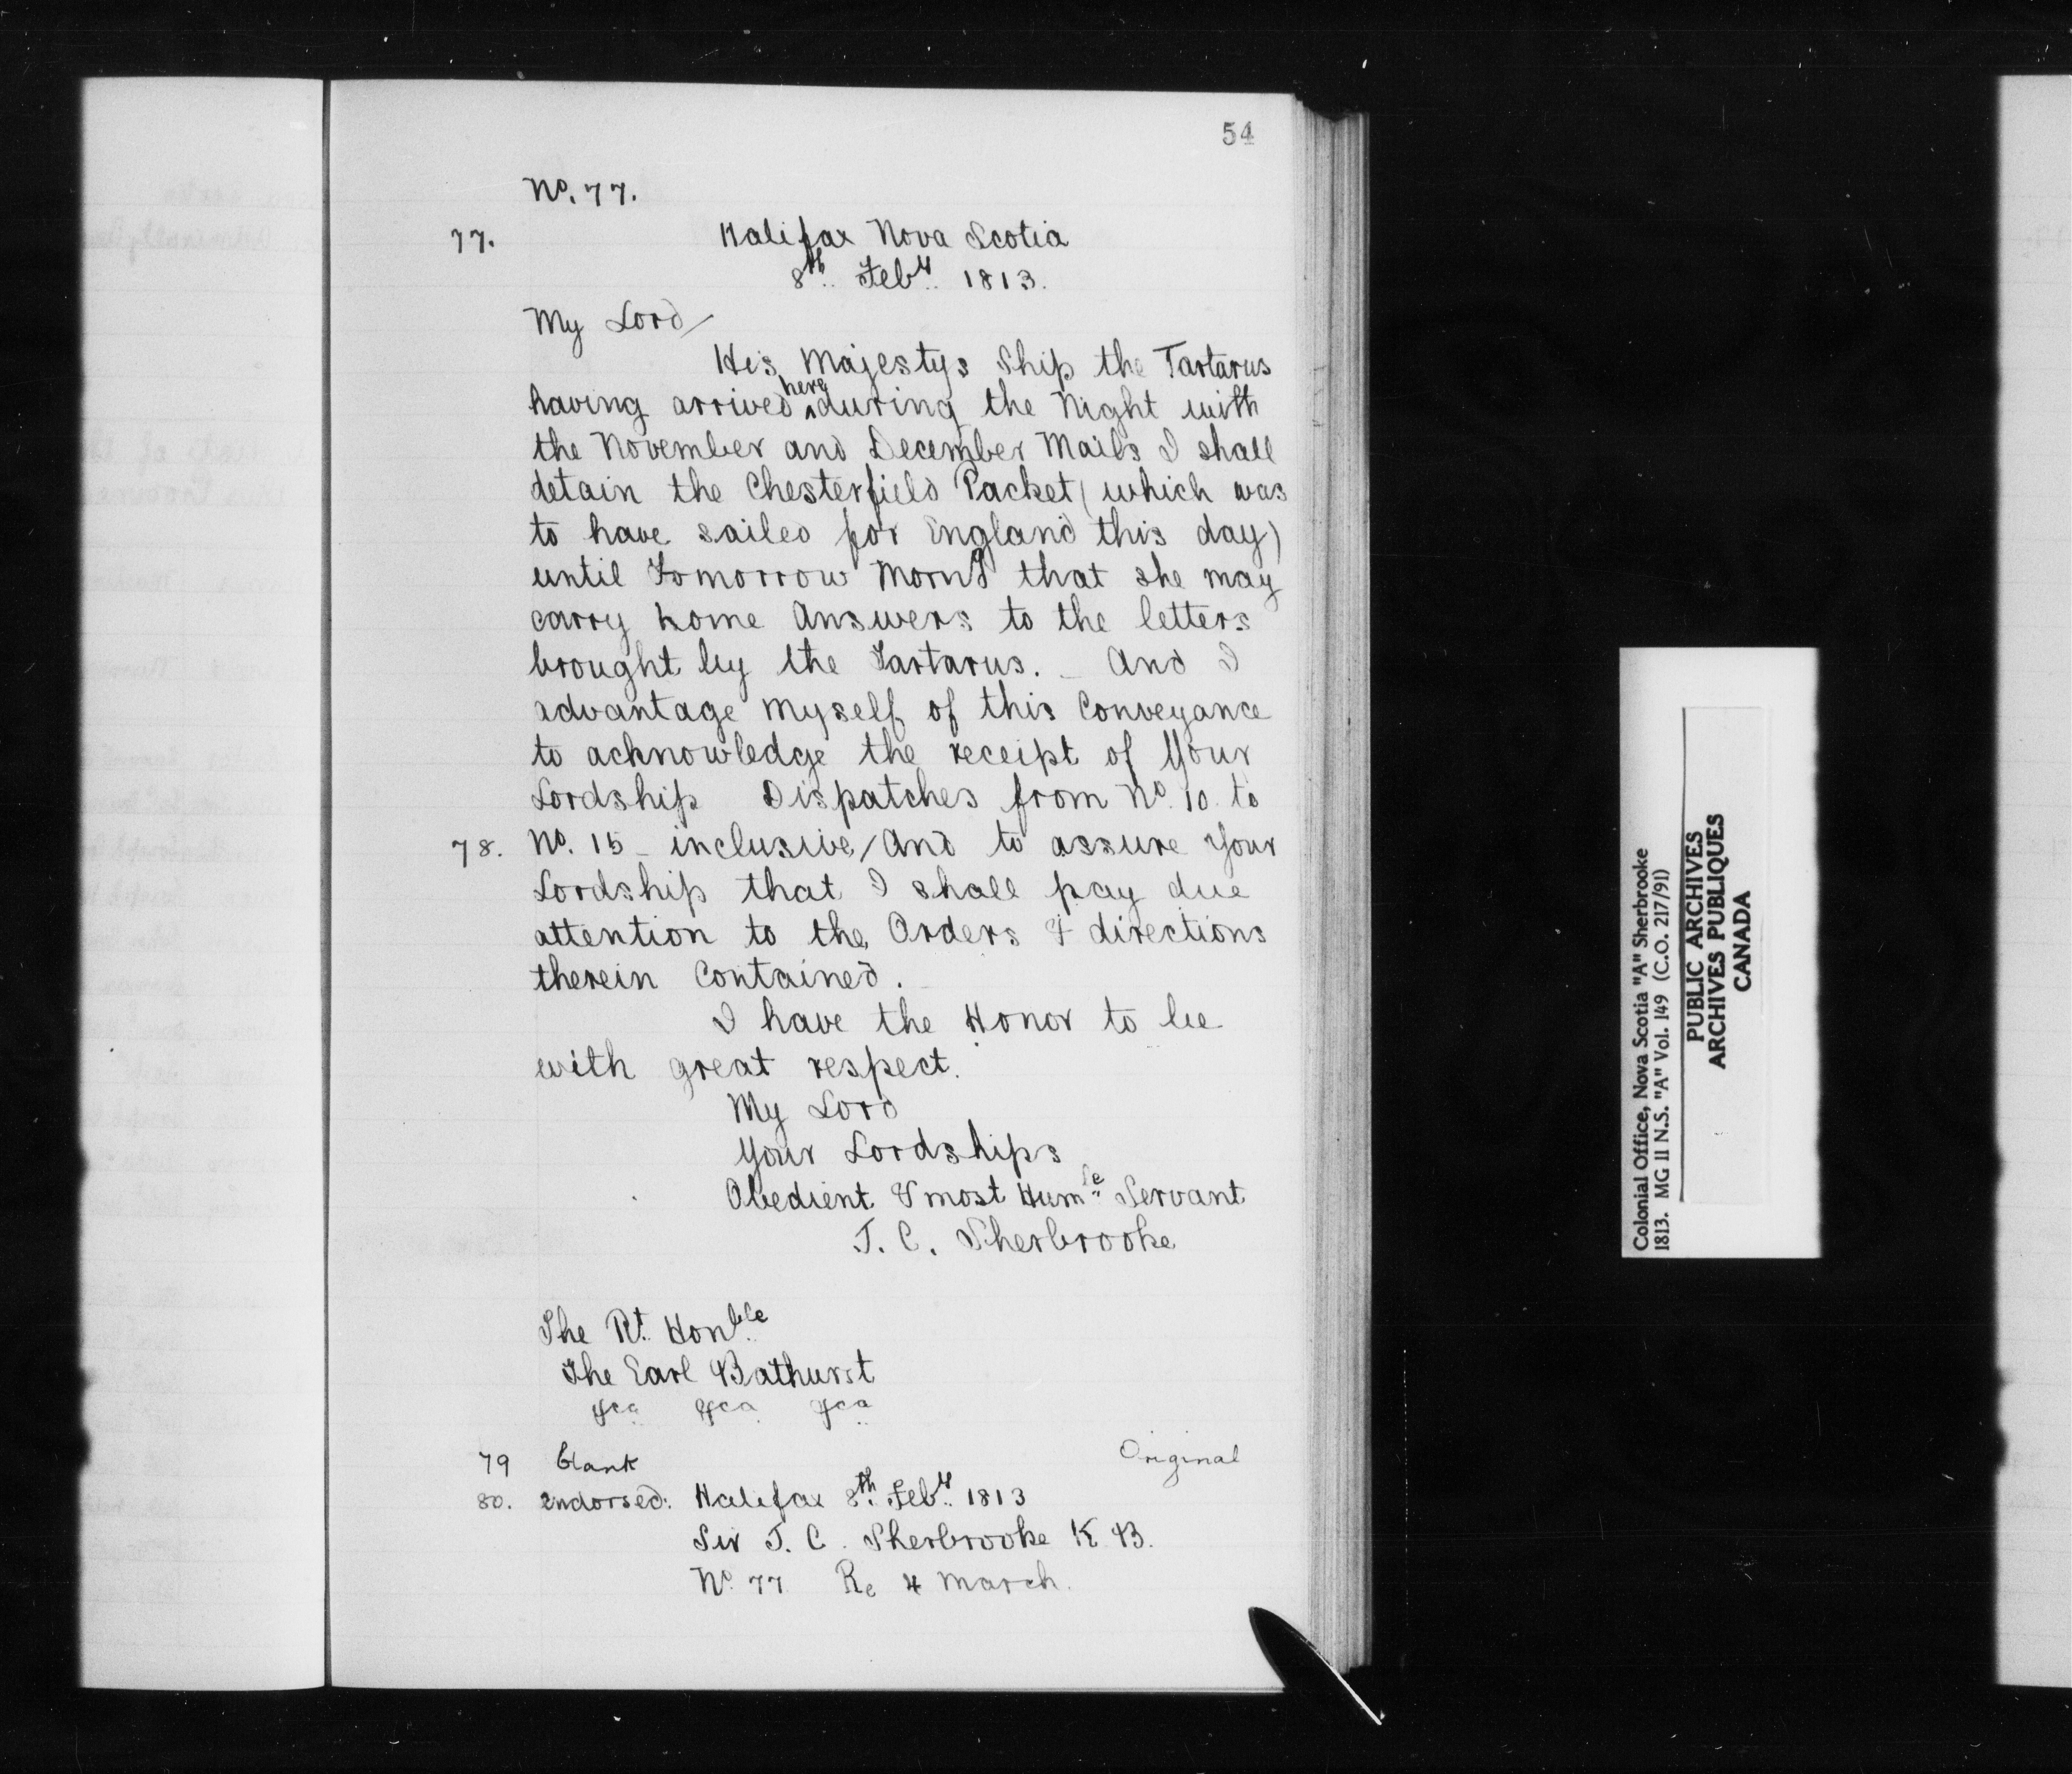 54
No. 77.
77. Halifax Nova Scotia
8th Feby 1813.
My Lord/
His Majestys Ship the Tartarus
having arrived here during the Night with
the November and December Mails I shall
detain the Chesterfield Packet (which was
to have sailed for England this day)
until Tomorrow Morng that she may
carry home Answers to the letters
brought by the Tartarus. And I
advantage myself of this Conveyance
to acknowledge the receipt of Your
Lordship Dispatches from No. 10 to
78. No. 15 - inclusive/And to assure Your
Lordship that I shall pay due
attention to the Orders & directions
therein Contained.
I have the Honor to be
with great respect.
My Lord
Your Lordships
Obedient & most Humle Servant
J. C. Sherbrooke
The Rt. Honble
The Earl Bathurst
&ca &ca &ca
79 blank Original
80. endorsed: Halifax 8th Feby 1813
Sir J. C. Sherbrooke K.B.
No. 77 Re 4 March.
Colonial Office, Nova Scotia "A" Sherbrooke
1813. MG 11 N.S. "A" Vol. 149 (C.O. 217/91)
PUBLIC ARCHIVES
ARCHIVES PUBLIQUES
CANADA